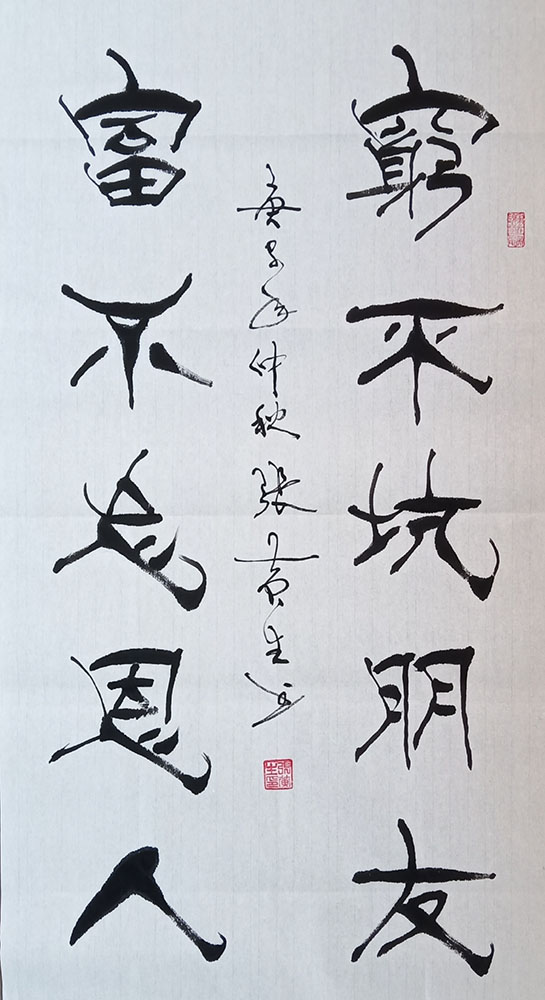 窮不坑朋友
富不忘恩人
庚子年仲秋張寅生书